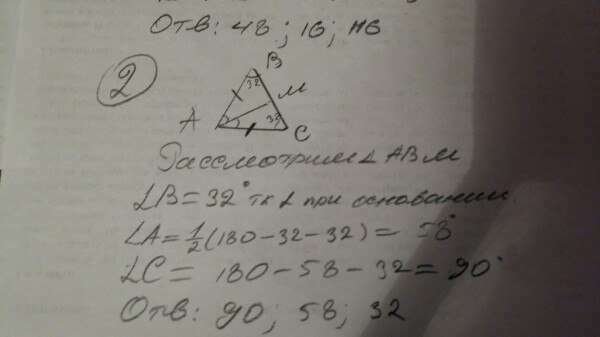 Отв: 48; 16; 116
2
B
32
M
A
32
C
Рассмотрим ∠ ABM
∠B = 32° тк ∠ при основании
∠A = 1/2(180-32-32) = 58°
∠C = 180-58-32 = 90°
Отв: 90; 58; 32